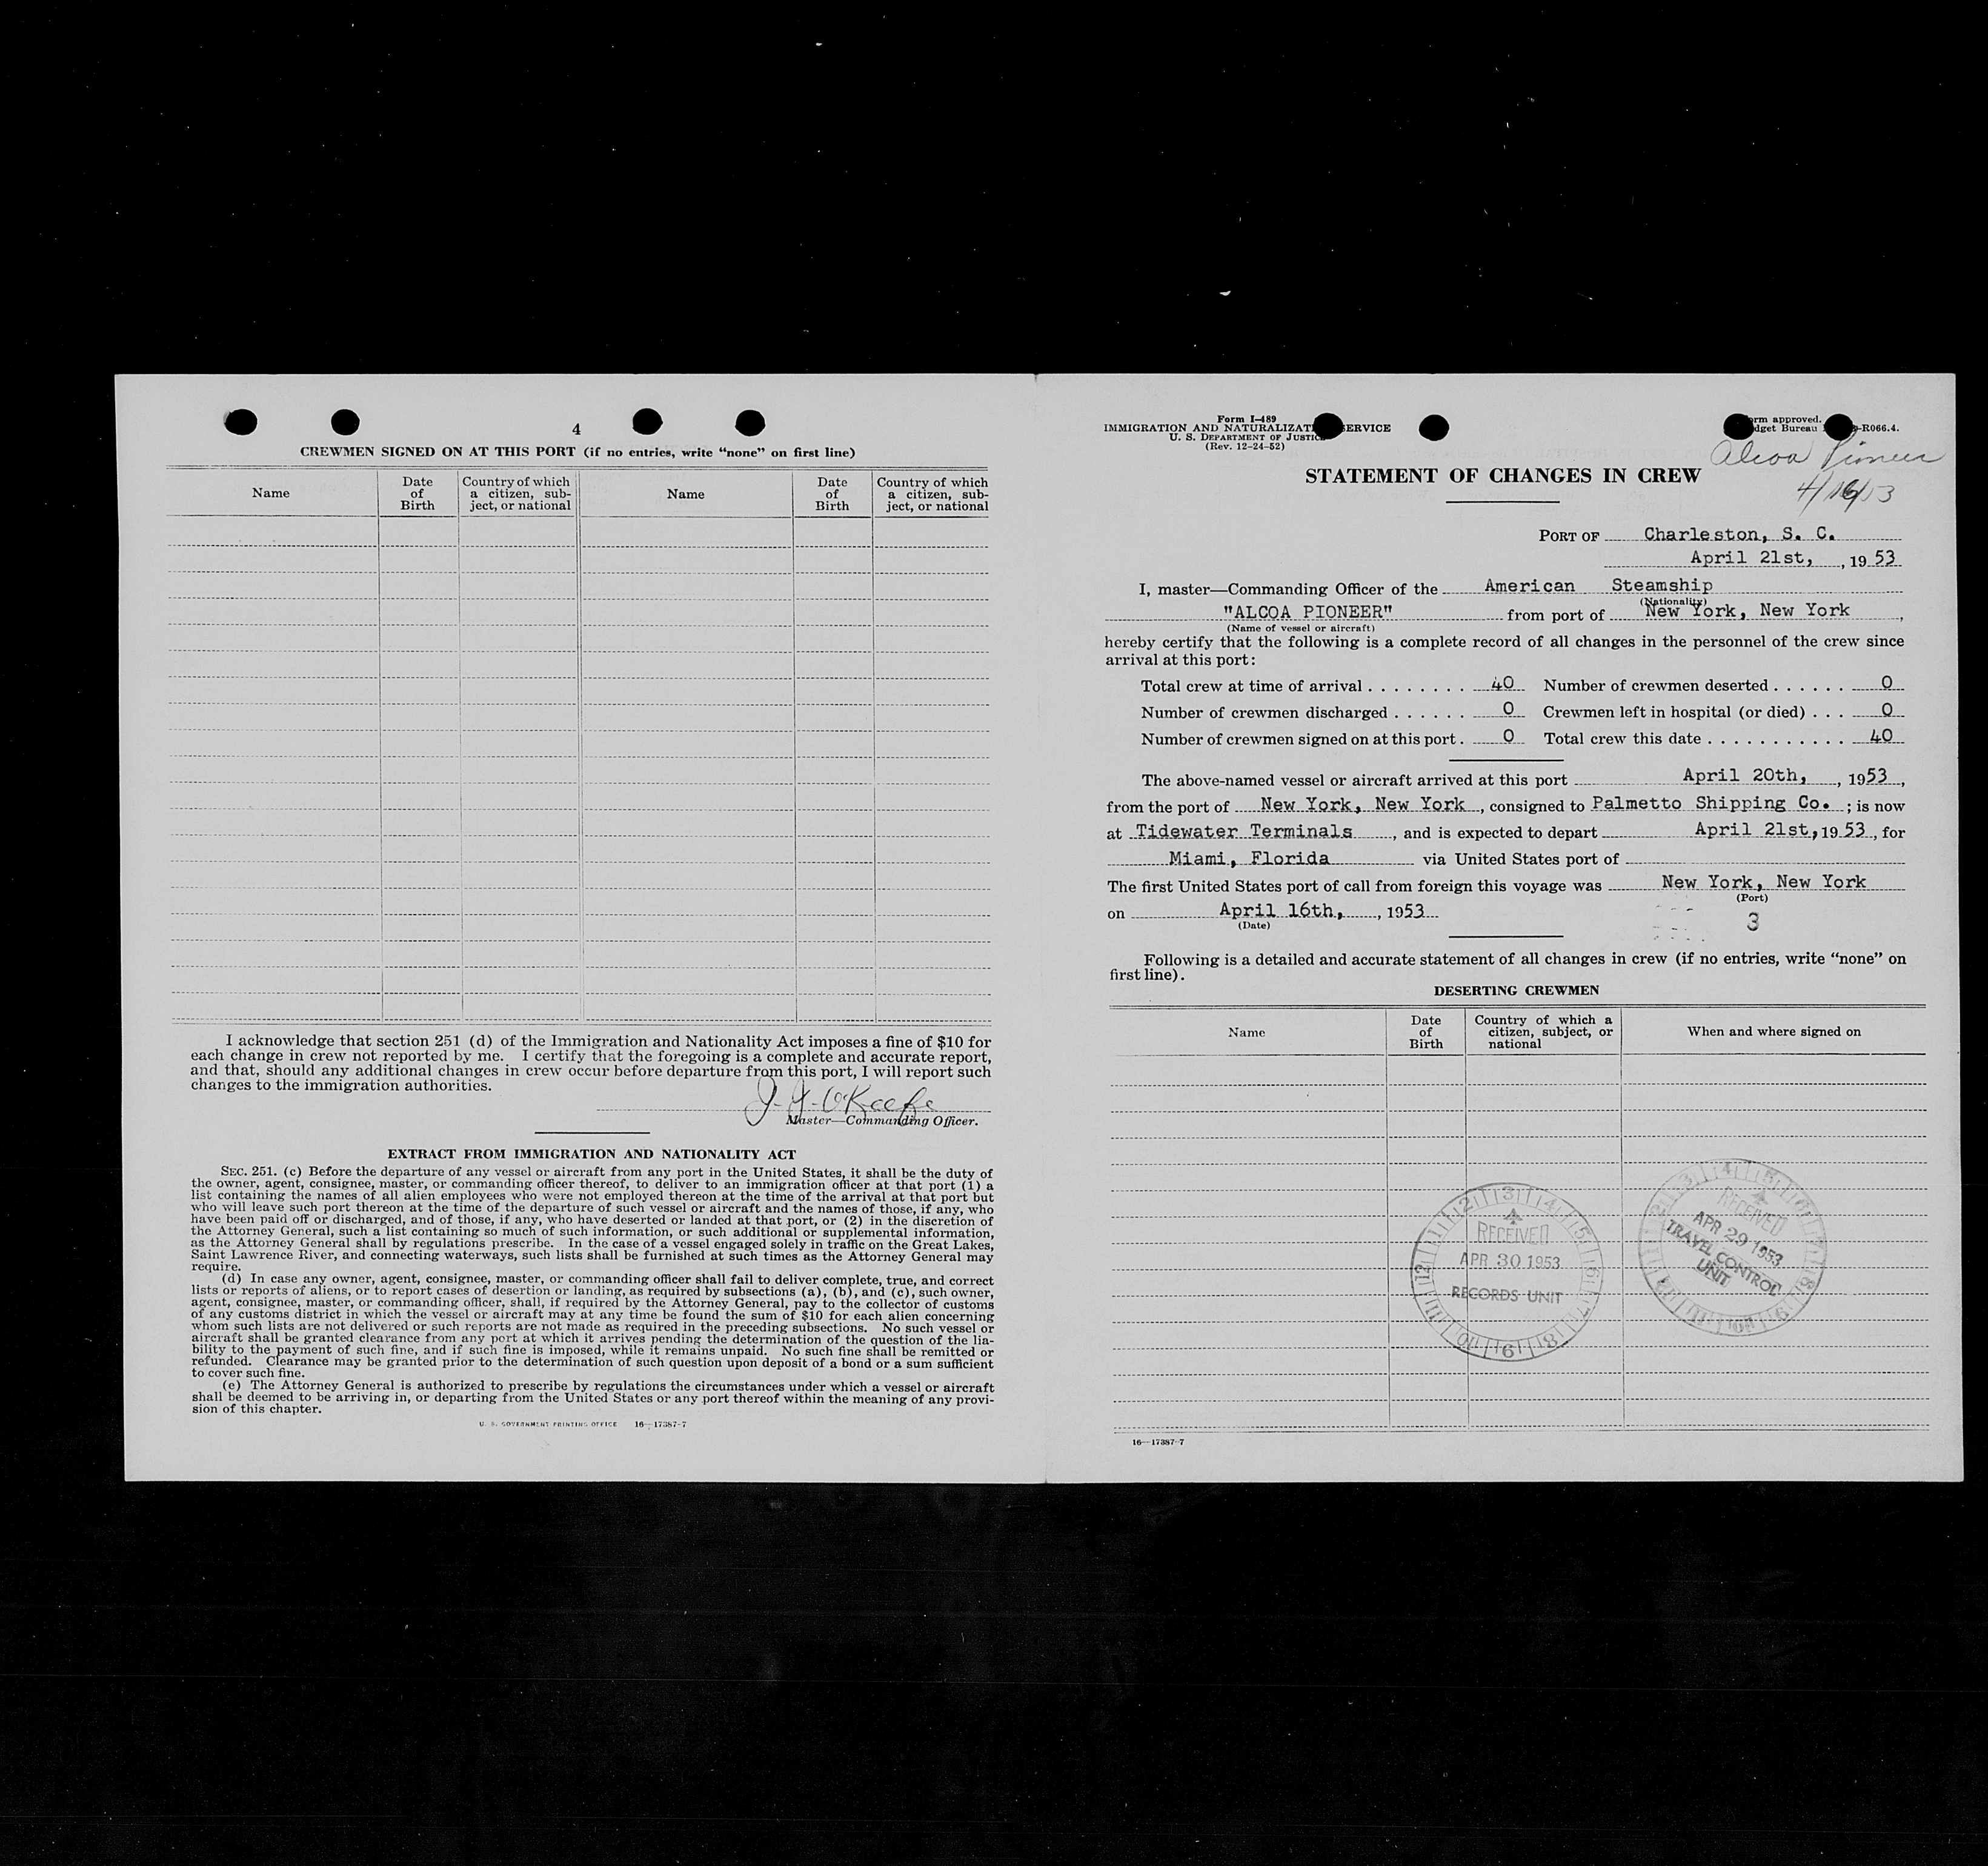 4
CREWMEN SIGNED ON AT THIS PORT (if no entries, write “none” on first line)
Name
Date of Birth
Country of which a citizen, sub-ject, or national
Name
Date of Birth
Country of which a citizen, sub-ject, or national
I acknowledge that section 251 (d) of the Immigration and Nationality Act imposes a fine of $10 for
each change in crew not reported by me. I certify that the foregoing is a complete and accurate report,
and that, should any additional changes in crew occur before departure from this port, I will report such
changes to the immigration authorities.
J. J. O'Keefe
Master—Commanding Officer.
EXTRACT FROM IMMIGRATION AND NATIONALITY ACT
SEC. 251. (c) Before the departure of any vessel or aircraft from any port in the United States, it shall be the duty of
the owner, agent, consignee, master, or commanding officer thereof, to deliver to an immigration officer at that port (1) a
list containing the names of all alien employees who were not employed thereon at the time of the arrival at that port but
who will leave such port thereon at the time of the departure of such vessel or aircraft and the names of those, if any, who
have been paid off or discharged, and of those, if any, who have deserted or landed at that port, or (2) in the discretion of
the Attorney General, such a list containing so much of such information, or such additional or supplemental information,
as the Attorney General shall by regulations prescribe. In the case of a vessel engaged solely in traffic on the Great Lakes,
Saint Lawrence River, and connecting waterways, such lists shall be furnished at such times as the Attorney General may
require.
(d) In case any owner, agent, consignee, master, or commanding officer shall fail to deliver complete, true, and correct
lists or reports of aliens, or to report cases of desertion or landing, as required by subsections (a), (b), and (c), such owner,
agent, consignee, master, or commanding officer, shall, if required by the Attorney General, pay to the collector of customs
of any customs district in which the vessel or aircraft may at any time be found the sum of $10 for each alien concerning
whom such lists are not delivered or such reports are not made as required in the preceding subsections. No such vessel or
aircraft shall be granted clearance from any port at which it arrives pending the determination of the question of the lia-
bility to the payment of such fine, and if such fine is imposed, while it remains unpaid. No such fine shall be remitted or
refunded. Clearance may be granted prior to the determination of such question upon deposit of a bond or a sum sufficient
to cover such fine.
(e) The Attorney General is authorized to prescribe by regulations the circumstances under which a vessel or aircraft
shall be deemed to be arriving in, or departing from the United States or any port thereof within the meaning of any provi-
sion of this chapter.
U. S. GOVERNMENT PRINTING OFFICE 16—17387-7
Form I-489
IMMIGRATION AND NATURALIZAT SERVICE
U. S. DEPARTMENT OF JUSTIC
(Rev. 12-24-52)
rm approved.
dget Bureau -R066.4.
Alcoa Pioneer
4/16/53
STATEMENT OF CHANGES IN CREW
PORT OF Charleston, S. C.
April 21st, , 19 53
I, master—Commanding Officer of the American Steamship
(Nationality)
"ALCOA PIONEER" from port of New York, New York ,
(Name of vessel or aircraft)
hereby certify that the following is a complete record of all changes in the personnel of the crew since
arrival at this port:
Total crew at time of arrival . . . . . . . . 40 Number of crewmen deserted . . . . . . 0
Number of crewmen discharged . . . . . . 0 Crewmen left in hospital (or died) . . . 0
Number of crewmen signed on at this port . 0 Total crew this date . . . . . . . . . . . 40
The above-named vessel or aircraft arrived at this port April 20th, , 1953 ,
from the port of New York, New York , consigned to Palmetto Shipping Co. ; is now
at Tidewater Terminals , and is expected to depart April 21st, 19 53 , for
Miami, Florida via United States port of
The first United States port of call from foreign this voyage was New York, New York
(Port)
on April 16th, , 1953
(Date)
3
Following is a detailed and accurate statement of all changes in crew (if no entries, write “none” on
first line).
DESERTING CREWMEN
Name
Date of Birth
Country of which a citizen, subject, or national
When and where signed on
RECEIVED
APR 30 1953
RECORDS UNIT
RECEIVED
APR 29 1953
TRAVEL CONTROL
UNIT
16—17387-7